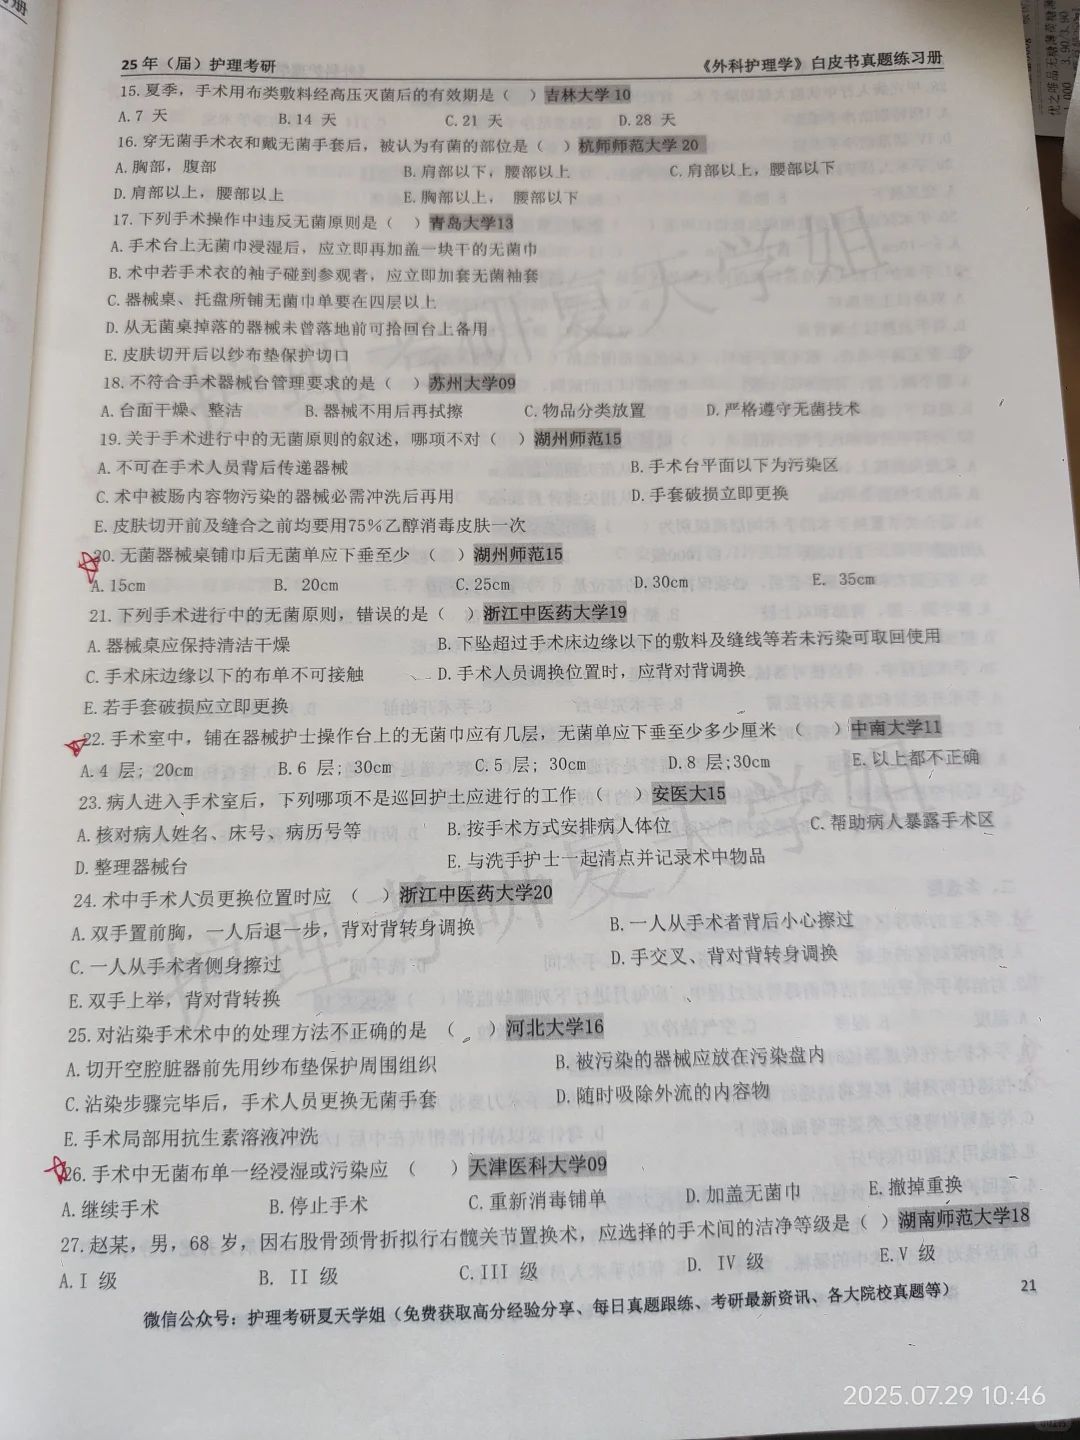 25年（届）护理考研
《外科护理学》白皮书真题练习册
15.夏季，手术用布类敷料经高压灭菌后的有效期是（ ）吉林大学10
A.7 天 B.14 天 C.21 天 D.28 天
16.穿无菌手术衣和戴无菌手套后，被认为有菌的部位是（ ）杭师师范大学20
A.胸部，腹部 B.肩部以下，腰部以上 C.肩部以上，腰部以下
D.肩部以上，腰部以上 E.胸部以上， 腰部以下
17.下列手术操作中违反无菌原则是（ ）青岛大学13
A.手术台上无菌巾浸湿后，应立即再加盖一块干的无菌巾
B.术中若手术衣的袖子碰到参观者，应立即加套无菌袖套
C.器械桌、托盘所铺无菌巾单要在四层以上
D.从无菌桌掉落的器械未曾落地前可拾回台上备用
E.皮肤切开后以纱布垫保护切口
18.不符合手术器械台管理要求的是（ ）苏州大学09
A.台面干燥、整洁 B.器械不用后再拭擦 C.物品分类放置 D.严格遵守无菌技术
19.关于手术进行中的无菌原则的叙述，哪项不对（ ）湖州师范15
A.不可在手术人员背后传递器械 B.手术台平面以下为污染区
C.术中被肠内容物污染的器械必需冲洗后再用 D.手套破损立即更换
E.皮肤切开前及缝合之前均要用75%乙醇消毒皮肤一次
20.无菌器械桌铺巾后无菌单应下垂至少 （ ）湖州师范15
A.15cm B. 20cm C.25cm D.30cm E. 35cm
21.下列手术进行中的无菌原则，错误的是（ ）浙江中医药大学19
A.器械桌应保持清洁干燥 B.下坠超过手术床边缘以下的敷料及缝线等若未污染可取回使用
C.手术床边缘以下的布单不可接触 D.手术人员调换位置时，应背对背调换
E.若手套破损应立即更换
22.手术室中，铺在器械护士操作台上的无菌巾应有几层，无菌单应下垂至少多少厘米 （ ）中南大学11
A.4 层；20cm B.6 层；30cm C.5 层；30cm D.8 层;30cm E.以上都不正确
23.病人进入手术室后，下列哪项不是巡回护士应进行的工作 （ ）安医大15
A.核对病人姓名、床号、病历号等 B.按手术方式安排病人体位 C.帮助病人暴露手术区
D.整理器械台 E.与洗手护士一起清点并记录术中物品
24.术中手术人员更换位置时应 （ ）浙江中医药大学20
A.双手置前胸，一人后退一步，背对背转身调换 B.一人从手术者背后小心擦过
C.一人从手术者侧身擦过 D.手交叉、背对背转身调换
E.双手上举，背对背转换
25.对沾染手术术中的处理方法不正确的是 （ ）河北大学16
A.切开空腔脏器前先用纱布垫保护周围组织 B.被污染的器械应放在污染盘内
C.沾染步骤完毕后，手术人员更换无菌手套 D.随时吸除外流的内容物
E.手术局部用抗生素溶液冲洗
26.手术中无菌布单一经浸湿或污染应 （ ）天津医科大学09
A.继续手术 B.停止手术 C.重新消毒铺单 D.加盖无菌巾 E.撤掉重换
27.赵某，男，68 岁，因右股骨颈骨折拟行右髋关节置换术，应选择的手术间的洁净等级是（ ）湖南师范大学18
A.I 级 B. II 级 C.III 级 D. IV 级 E.V 级
微信公众号：护理考研夏天学姐（免费获取高分经验分享、每日真题跟练、考研最新资讯、各大院校真题等） 21
护理考研夏天学姐
护理考研夏天学姐
2025.07.29 10:46